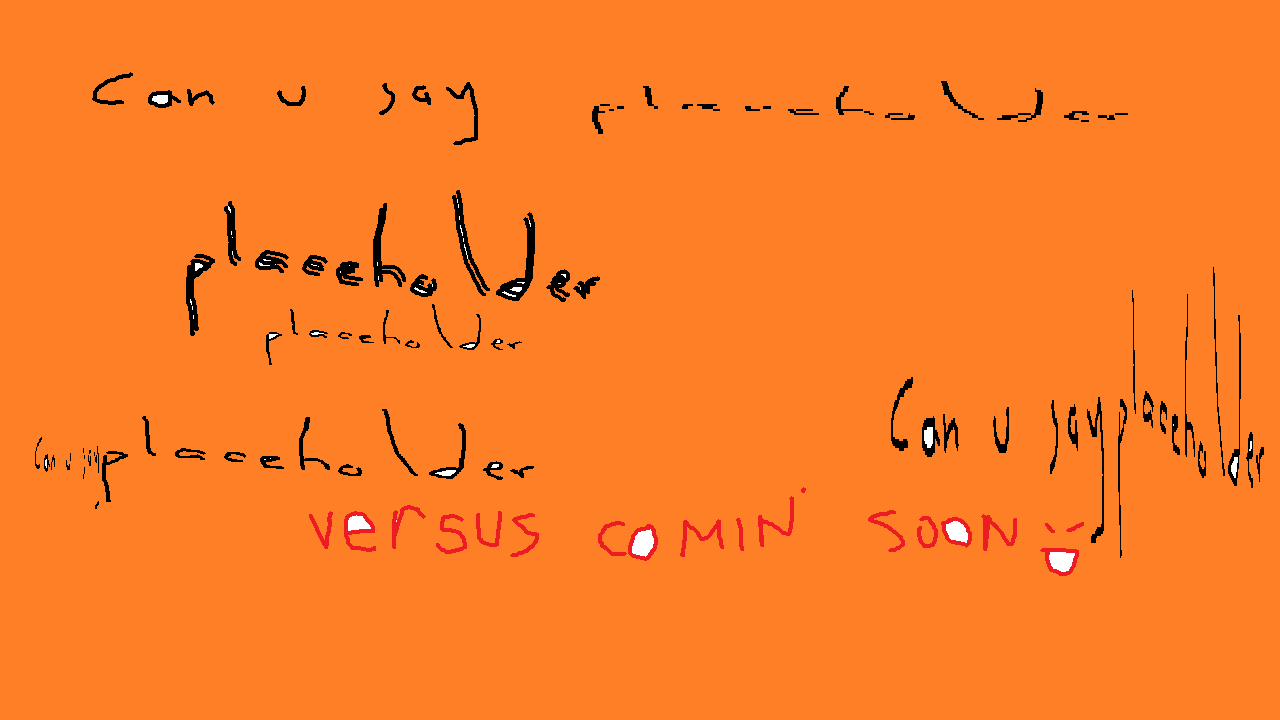 Can u say placeholder
placeholder
placeholder
Can u say placeholder
Can u say placeholder
versus comin' soon